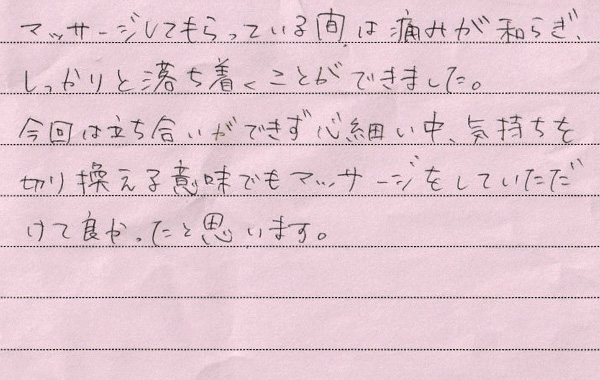 マッサージしてもらっている間は痛みが和らぎ、
しっかりと落ち着くことができました。
今回は立ち合いができず心細い中、気持ちを
切り換える意味でもマッサージをしていただ
けて良かったと思います。